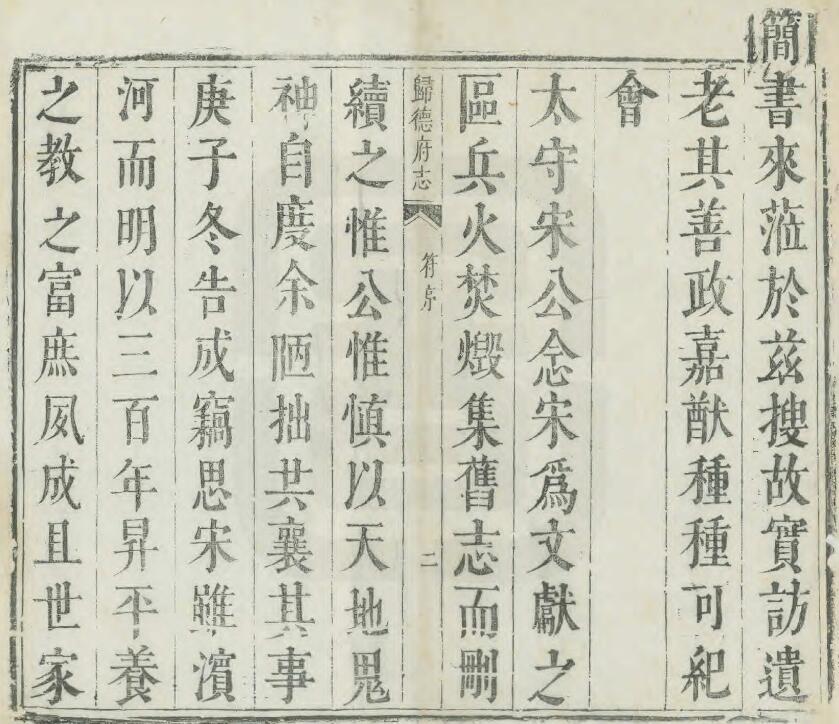 簡書來蒞於玆搜故實訪遺
老其善政嘉猷種種可紀
會
太守宋公念宋爲文獻之
區兵火焚燬集舊志而刪
歸德府志
符序
二
續之惟公惟慎以天地鬼
神自度余陋拙共襄其事
庚子冬告成竊思宋雖濱
河而明以三百年昇平養
之教之富庶夙成且世家